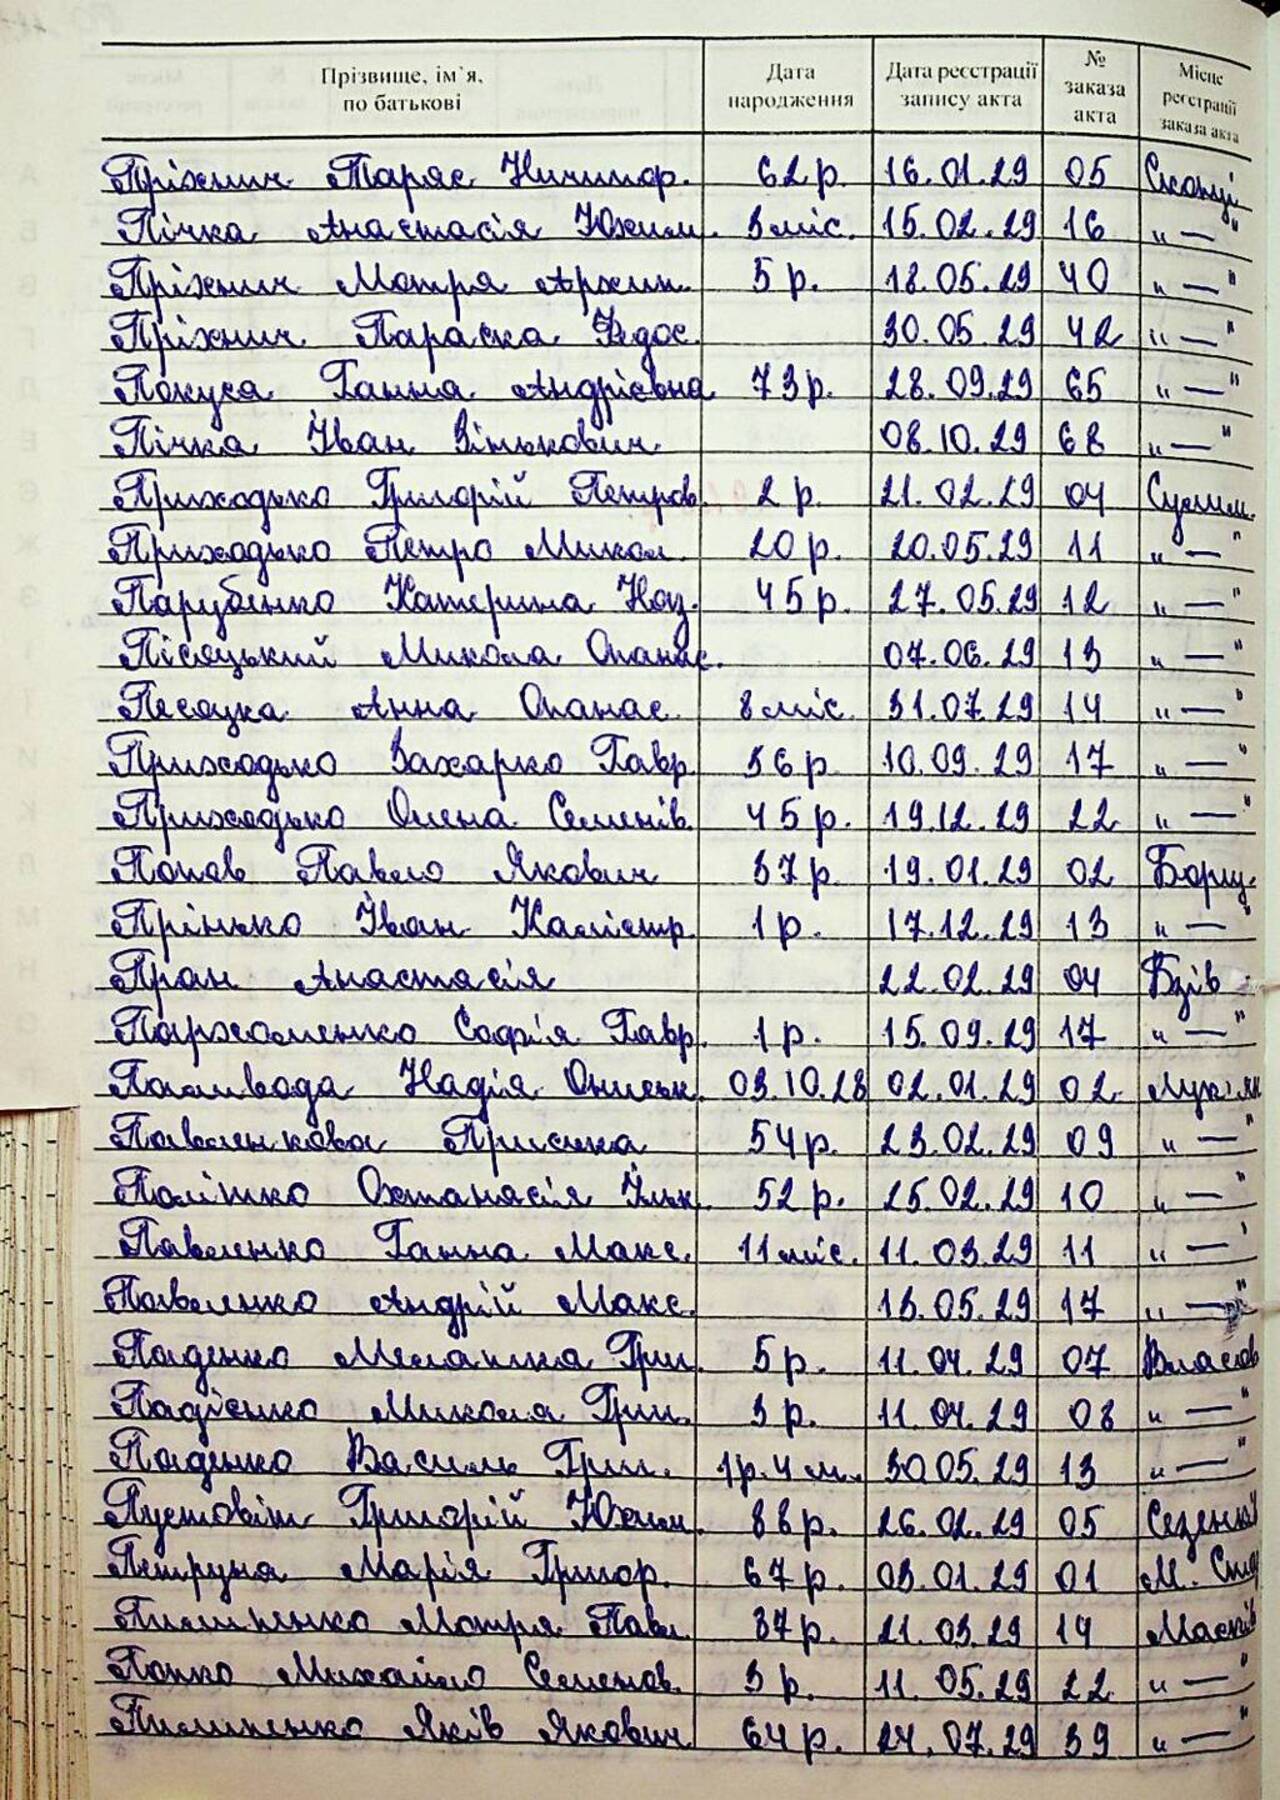 Прізвище, ім`я, по батькові Дата народження Дата реєстрації запису акта № заказа акта Місце реєстрації заказа акта
Пріхнич Тарас Ничипор. 62 р. 16.01.29 05
Пічка Анастасія Юхим. 3 міс. 15.02.29 16 "—"
Пріхнич Мотря Архип. 5 р. 18.05.29 40 "—"
Пріхнич Параска Федос. 30.05.29 42 "—"
Покуса Ганна Андріївна 73 р. 28.09.29 65 "—"
Пічка Іван Зінькович 08.10.29 68 "—"
Приходько Григорій Петров. 2 р. 21.02.29 04 Сулим.
Приходько Петро Микол. 20 р. 20.05.29 11 "—"
Парубенко Катерина Наз. 45 р. 27.05.29 12 "—"
Пісяцький Микола Опанас. 07.06.29 13 "—"
Песоцка Анна Опанас. 8 міс. 31.07.29 14 "—"
Приходько Захарко Гавр. 56 р. 10.09.29 17 "—"
Приходько Олена Семенів. 45 р. 19.12.29 22 "—"
Попов Павло Якович 37 р. 19.01.29 02 Борщ.
Прінько Іван Калістр. 1 р. 17.12.29 13 "—"
Пран Анастасія 22.02.29 04 Бзів
Пархоменко Софія Гавр. 1 р. 15.09.29 17 "—"
Паливода Надія Ониськ. 03.10.28 02.01.29 02 Лук'ян
Павленкова Приська 54 р. 23.02.29 09 "—"
Палішко Охтанасія Ільк. 52 р. 25.02.29 10 "—"
Павленко Ганна Макс. 11 міс. 11.03.29 11 "—"
Павленко Андрій Макс. 13.05.29 17 "—"
Паденко Меланика Григ. 5 р. 11.04.29 07 Власов
Падієнко Микола Григ. 3 р. 11.04.29 08 "—"
Паденко Василь Григ. 1 р. 4 м. 30.05.29 13 "—"
Пустовіт Григорій Юхим. 88 р. 26.02.29 05 Сезеньк
Петруна Марія Григор. 67 р. 03.01.29 01 М. Стар
Пилипенко Мотря Павл. 37 р. 21.03.29 14 Масків
Попко Михайло Семенов. 3 р. 11.05.29 22 "—"
Пилипенко Яків Якович. 64 р. 24.07.29 39 "—"